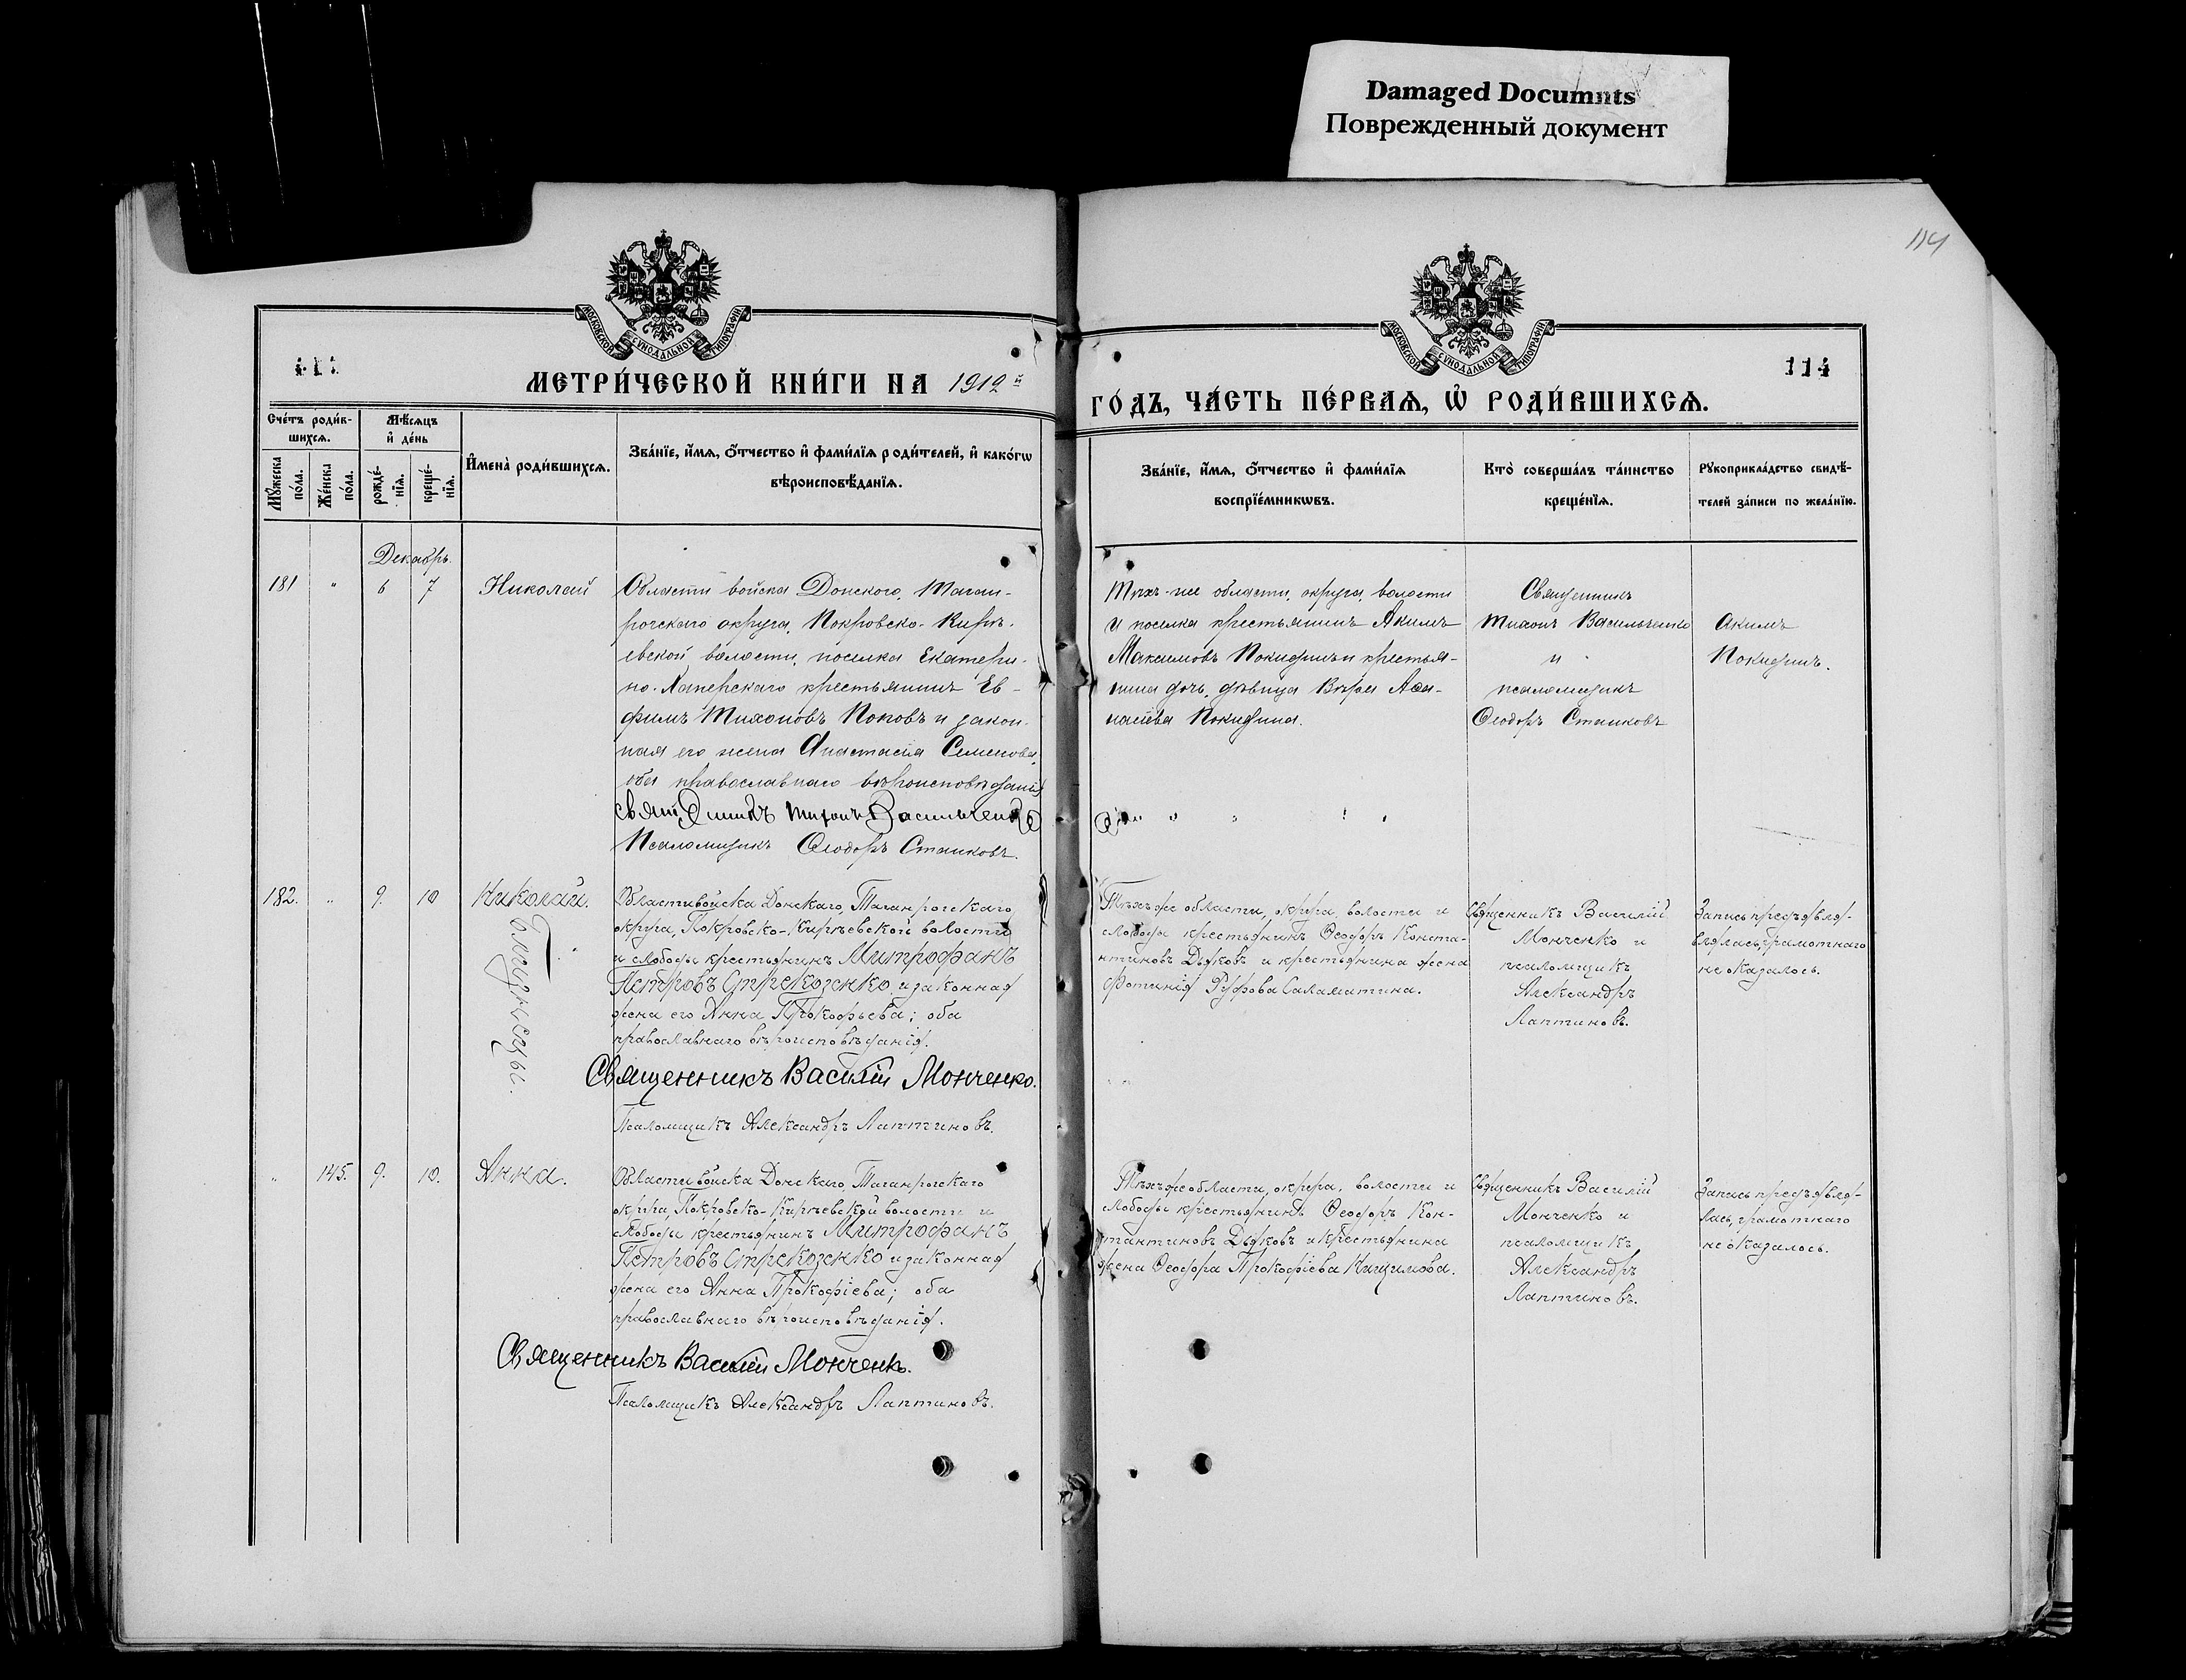 Damaged Documnts
Поврежденный документ
114
МОСКОВСКОЙ СѴНОДАЛЬНОЙ ТИПОГРАФІИ
МОСКОВСКОЙ СѴНОДАЛЬНОЙ ТИПОГРАФІИ
114
МЕТРИ́ЧЕСКОЙ КНИ́ГИ НА 1912 й
ГО́ДЪ, ЧА́СТЬ ПЕ́РВАѦ, Ѡ҆ РОДИ́ВШИХСѦ.
Сче́тъ роди́в-
шихсѧ.
Мѣ́сѧцъ
и҆ де́нь
Мꙋ́жеска
по́ла.
Же́нска
по́ла.
рожде́-
нїѧ.
креще́-
нїѧ.
И҆мена̀ роди́вшихсѧ.
Зва́нїе, и҆́мѧ, ѻ҆́тчество и҆ фами́лїѧ роди́телей, и҆ како́гѡ
вѣроисповѣ́данїѧ.
Зва́нїе, и҆́мѧ, ѻ҆́тчество и҆ фами́лїѧ
воспрїе́мникѡвъ.
Кто̀ соверша́лъ та́инство
креще́нїѧ.
Рꙋкоприкла́дство свидѣ́-
телей за́писи по жела́нїю.
Декабрь.
181 " 6 7 Николай
Области войска Донского, Таган-
рогскаго округа, Покровско-Киръ-
евской волости, поселка Екатери-
но-Хапенскаго крестьянинъ Ев-
фимъ Тихоновъ Поповъ и закон-
ная его жена Анастасія Семенова,
оба православнаго вѣроисповѣданія
Священникъ Тихонъ Васильченко
Псаломщикъ Ѳеодоръ Станковъ.
Тѣхъ-же области, округа, волости
и поселка крестьянинъ Акимъ
Максимовъ Покидинъ и крестья-
нина дочь, дѣвица Вѣра Аѳа-
насіева Покидина.
Священникъ
Тихонъ Васильченко
и
псаломщикъ
Ѳеодоръ Станковъ
Акимъ
Покидинъ.
182. " 9. 10 Николай.
Близнецы.
Области войска Донскаго, Таганрогскаго
округа, Покровско-Киръевской волости
и слободы крестьянинъ Митрофанъ
Петровъ Стрекозенко и законная
жена его Анна Прокофьева; оба
православнаго вѣроисповѣданія.
Священникъ Василій Монченко.
Псаломщикъ Александръ Лаптиновъ.
Тѣхъ же области, округа, волости и
слободы крестьянинъ Ѳеодоръ Конста-
нтиновъ Дьяковъ и крестьянина жена
Фотинія Руфова Саламатина.
Священникъ Василій
Монченко и
псаломщикъ
Александръ
Лаптиновъ.
Запись предъявля-
влялась, грамотнаго
не оказалось.
" 145. 9. 10. Анна.
Области войска Донскаго, Таганрогскаго
округа, Покровско-Киръевской волости и
слободы крестьянинъ Митрофанъ
Петровъ Стрекозенко и законная
жена его Анна Прокофіева; оба
православнаго вѣроисповѣданія.
Священникъ Василій Монченко.
Псаломщикъ Александръ Лаптиновъ.
Тѣхъ же области, округа, волости и
слободы крестьянинъ Ѳеодоръ Кон-
стантиновъ Дьяковъ и крестьянина
жена Ѳеодора Прокофіева
Священникъ Василій
Монченко и
псаломщикъ
Александръ
Лаптиновъ.
Запись предъявля-
лась, грамотнаго
не оказалось.